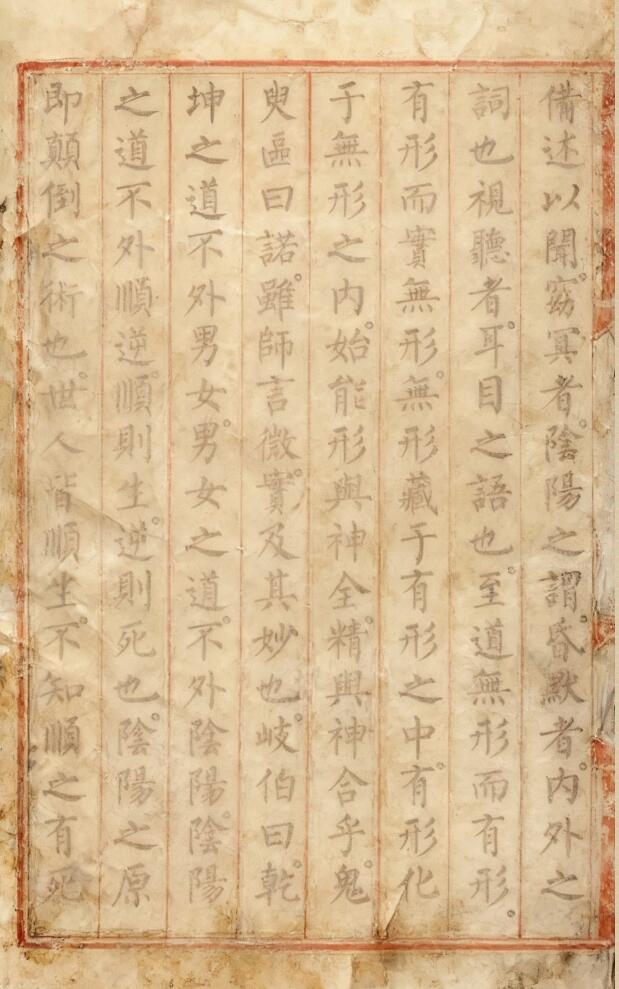 備述以聞窈冥者陰陽之謂昏默者内外之
詞也視聽者耳目之語也至道無形而有形
有形而實無形無形藏于有形之中有形化
于無形之内始能形與神全精與神合乎鬼
臾區曰諾雖師言微實及其妙也岐伯曰乾
坤之道不外男女男女之道不外陰陽陰陽
之道不外順逆順則生逆則死也陰陽之原
即顛倒之術也世人皆順生不知順之有死